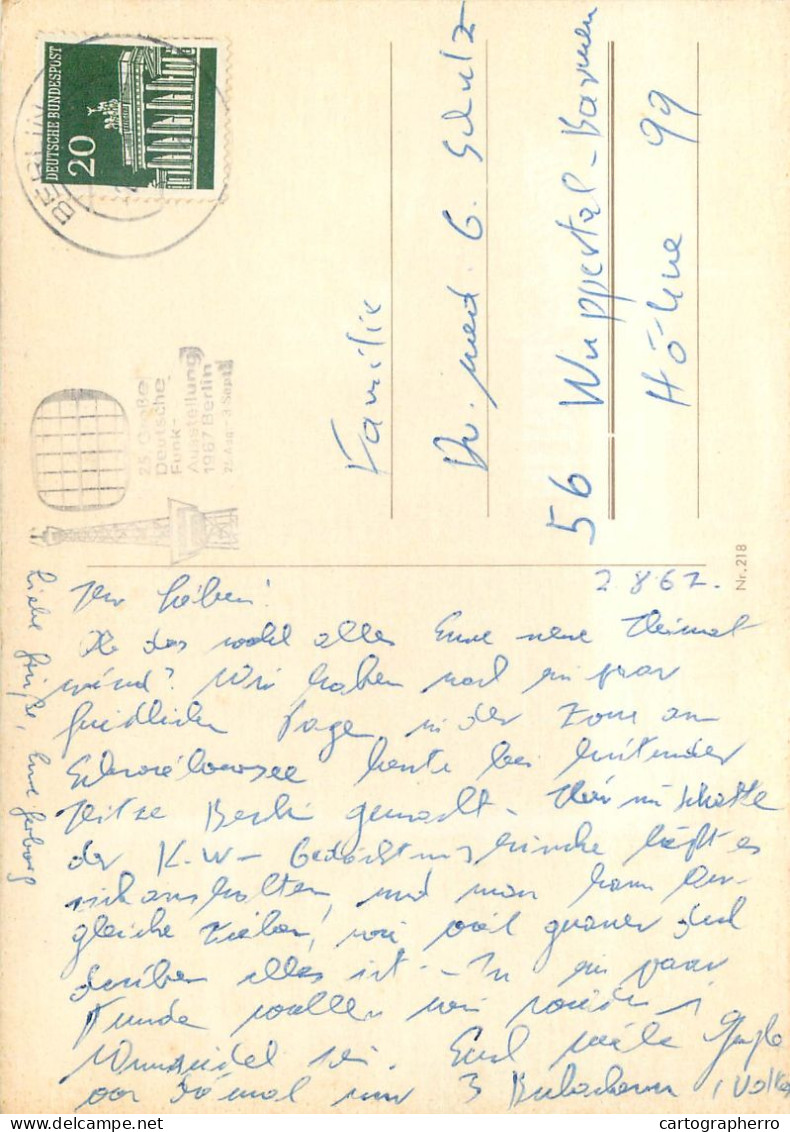 DEUTSCHE BUNDESPOST
20
BERLIN
25 Große
Deutsche
Funk-
Ausstellung
1967 Berlin
25 Aug - 3 Sept
Familie
Dr. med. G. Schulz
56 Wuppertal-Barmen
Höhne 99
Nr. 218
2.8.67.
Ihr Lieben!
Ob das wohl alles Eure neue Heimat
wird? Wir haben nach ein paar
friedlichen Tagen in der Zone am
Schwielowsee heute bei
Hitze Berlin gemacht. Hier im Schatten
der K.W-Gedächtniskirche läßt es
sich aushalten, und man kann Ver-
gleiche ziehen, wie viel grauer
drüben alles ist. - In ein paar
Stunde wollen wir wieder in
Wunsiedel sein. Euch viele
Liebe Grüße, Eure
cartographerro